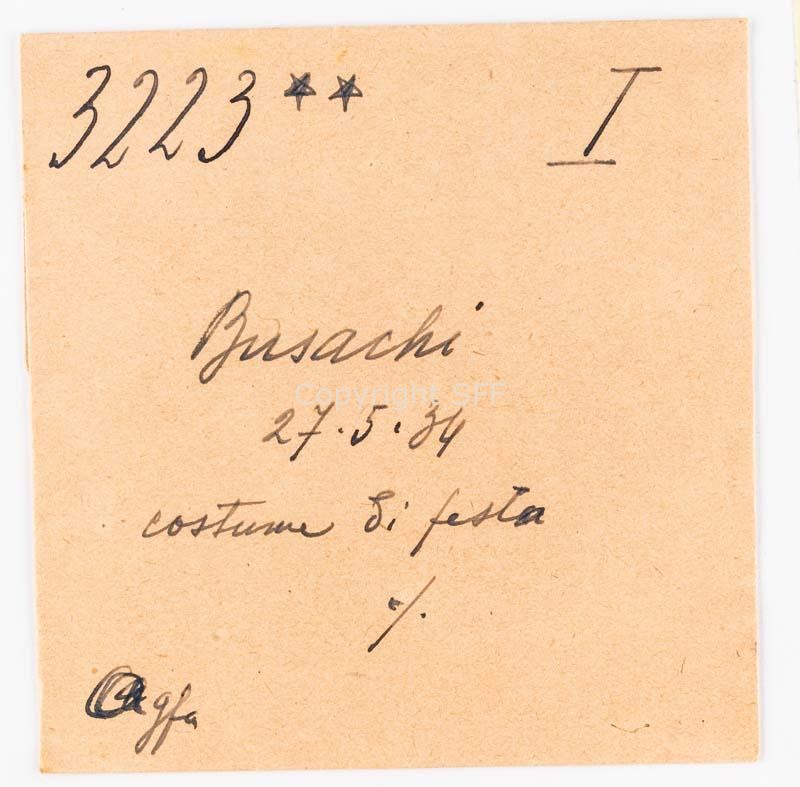 3223** I
Busachi
Copyright SFF
27.5.34
costume di festa
./.
Agfa